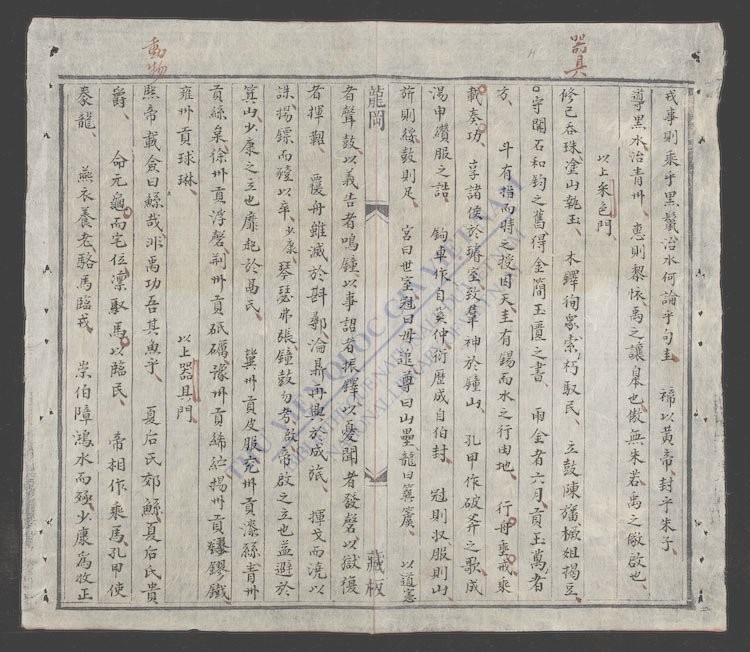 器具
戎事則乘乎黑鬣治水何論乎句圭、 禘以黄帝、封乎朱子、
導黑水、治青州、 惠則黎懷、禹之讓自本也、傲無朱若、禹之儆啟也、
以上采色門
修己吞珠塗山執玉、 木鐸徇衆、索朽馭民、 立鼓陳 橛俎揭豆、
守關石和鈞之舊得金簡玉匱之書、 雨金者六月、貢玉萬者
方、 斗有指而時之授因天圭有錫而水之行由地、 行舟垂戒乘
載奏功、 享諸侯於璿室致羣神於鍾山、 孔甲作破斧之歌成
湯申纘服之誥、 鉤車作自奚仲衍歷成自伯封、 冠則收服則山
斾則綏鼓則足、 宮曰世室冠曰毋追尊曰山罍龍曰簨簴、 以道憲
龍岡 藏板
者聲鼓以義告者鳴鐘以事詔者振鐸以憂聞者發磬以獄復
者揮鞀、 覆舟雖滅於斟鄩淪鼎再興於成旅、 揮戈而澆以
誅揚鏢而豷以卒、少康、琴瑟弗張、鐘鼓勿考、啟帝啟之立也益避於
箕山少康之立也靡起於鬲氏、 冀州貢皮服兗州貢漆絲青州
貢絲枲徐州貢浮磬荆州貢砥礪豫州貢絺紵揚州貢 鏐鐵
雍州貢球琳、 以上器具門
動物
熙帝載僉曰鯀哉、非禹功吾其魚乎、 夏后氏郊鯀、夏后氏貴
爵、 命元龜而宅位凛馭馬以臨民、 帝相作乘馬、孔甲使
豢龍、 燕衣養老駱馬臨戎、 崇伯障鴻水而殛少康爲牧正
THƯ VIỆN QUỐC GIA VIỆT NAM